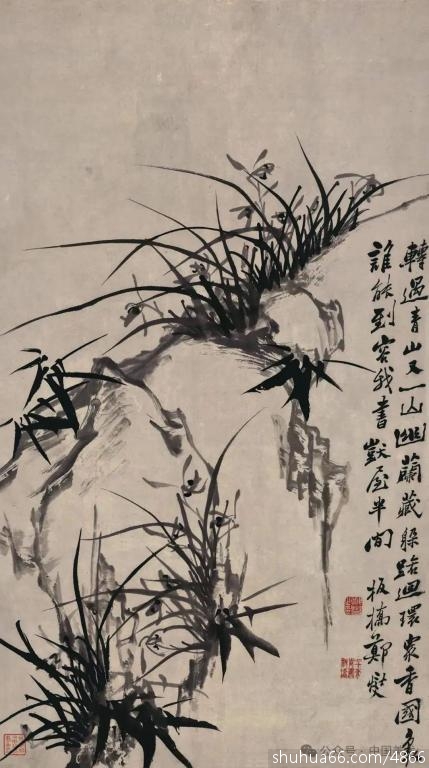 轉過青山又一山幽蘭藏躲路迴環衆香國裏
誰能到容我書獃屋半間 板橋鄭燮
公众号·中国
shuhua66.com/4866